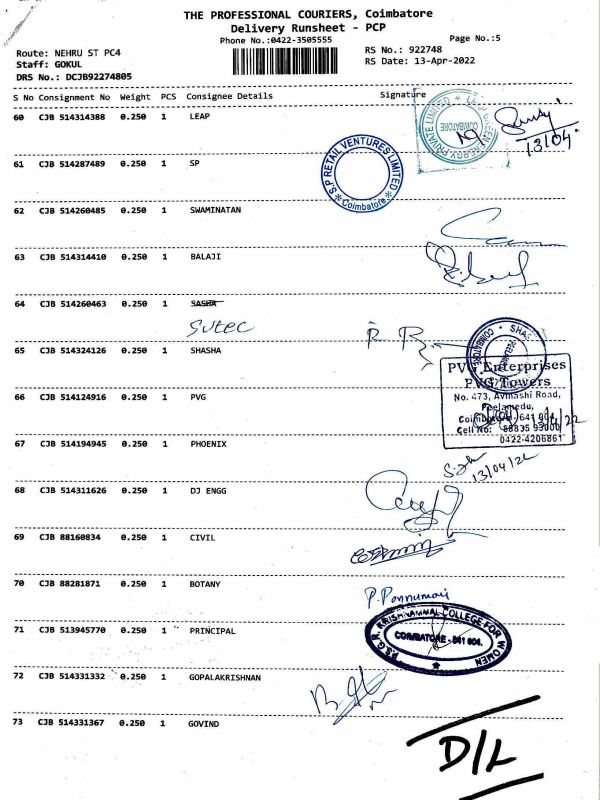 THE PROFESSIONAL COURIERS, Coimbatore
Delivery Runsheet - PCP
Phone No.:0422-3505555
Page No.:5
Route: NEHRU ST PC4
RS No.: 922748
Staff: GOKUL
RS Date: 13-Apr-2022
DRS No.: DCJB92274805
S No Consignment No Weight PCS Consignee Details Signature
60 CJB 514314388 0.250 1 LEAP
COIMBATORE
13/04
61 CJB 514287489 0.250 1 SP
S.P RETAIL VENTURES LIMITED
Coimbatore
62 CJB 514260485 0.250 1 SWAMINATAN
63 CJB 514314410 0.250 1 BALAJI
64 CJB 514260463 0.250 1 SASHA
Sutec
65 CJB 514324126 0.250 1 SHASHA
COIMBATORE
PVG Enterprises
PVG Towers
No. 473, Avinashi Road,
Peelamedu,
Coimbatore - 641 004.
Cell No: 88835 93000
0422-4206861
66 CJB 514124916 0.250 1 PVG
67 CJB 514194945 0.250 1 PHOENIX
13/04/22
68 CJB 514311626 0.250 1 DJ ENGG
69 CJB 88160834 0.250 1 CIVIL
70 CJB 88281871 0.250 1 BOTANY
P. Ponnumari
71 CJB 513945770 0.250 1 PRINCIPAL
P.S.G.R. KRISHNAMMAL COLLEGE FOR WOMEN
COIMBATORE - 641 004.
72 CJB 514331332 0.250 1 GOPALAKRISHNAN
73 CJB 514331367 0.250 1 GOVIND
D/L